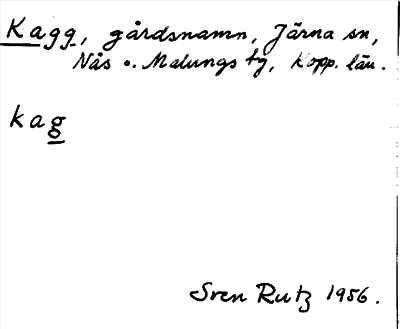 Kagg, gårdsnamn, Järna sn,
Nås o. Malungs tg, Kopp. län.
kag
Sven Rutz 1956.